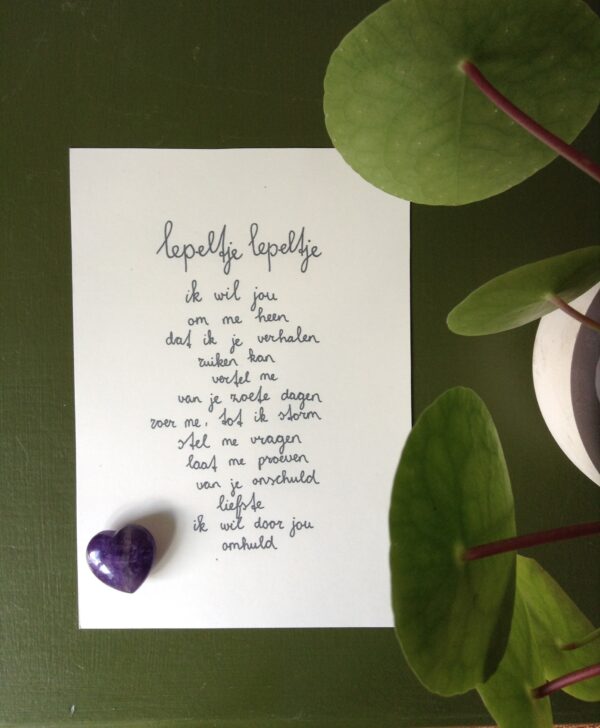 lepeltje lepeltje
ik wil jou
om me heen
dat ik je verhalen
ruiken kan
vertel me
van je zoete dagen
roer me, tot ik storm
stel me vragen
laat me proeven
van je onschuld
liefste
ik wil door jou
omhuld